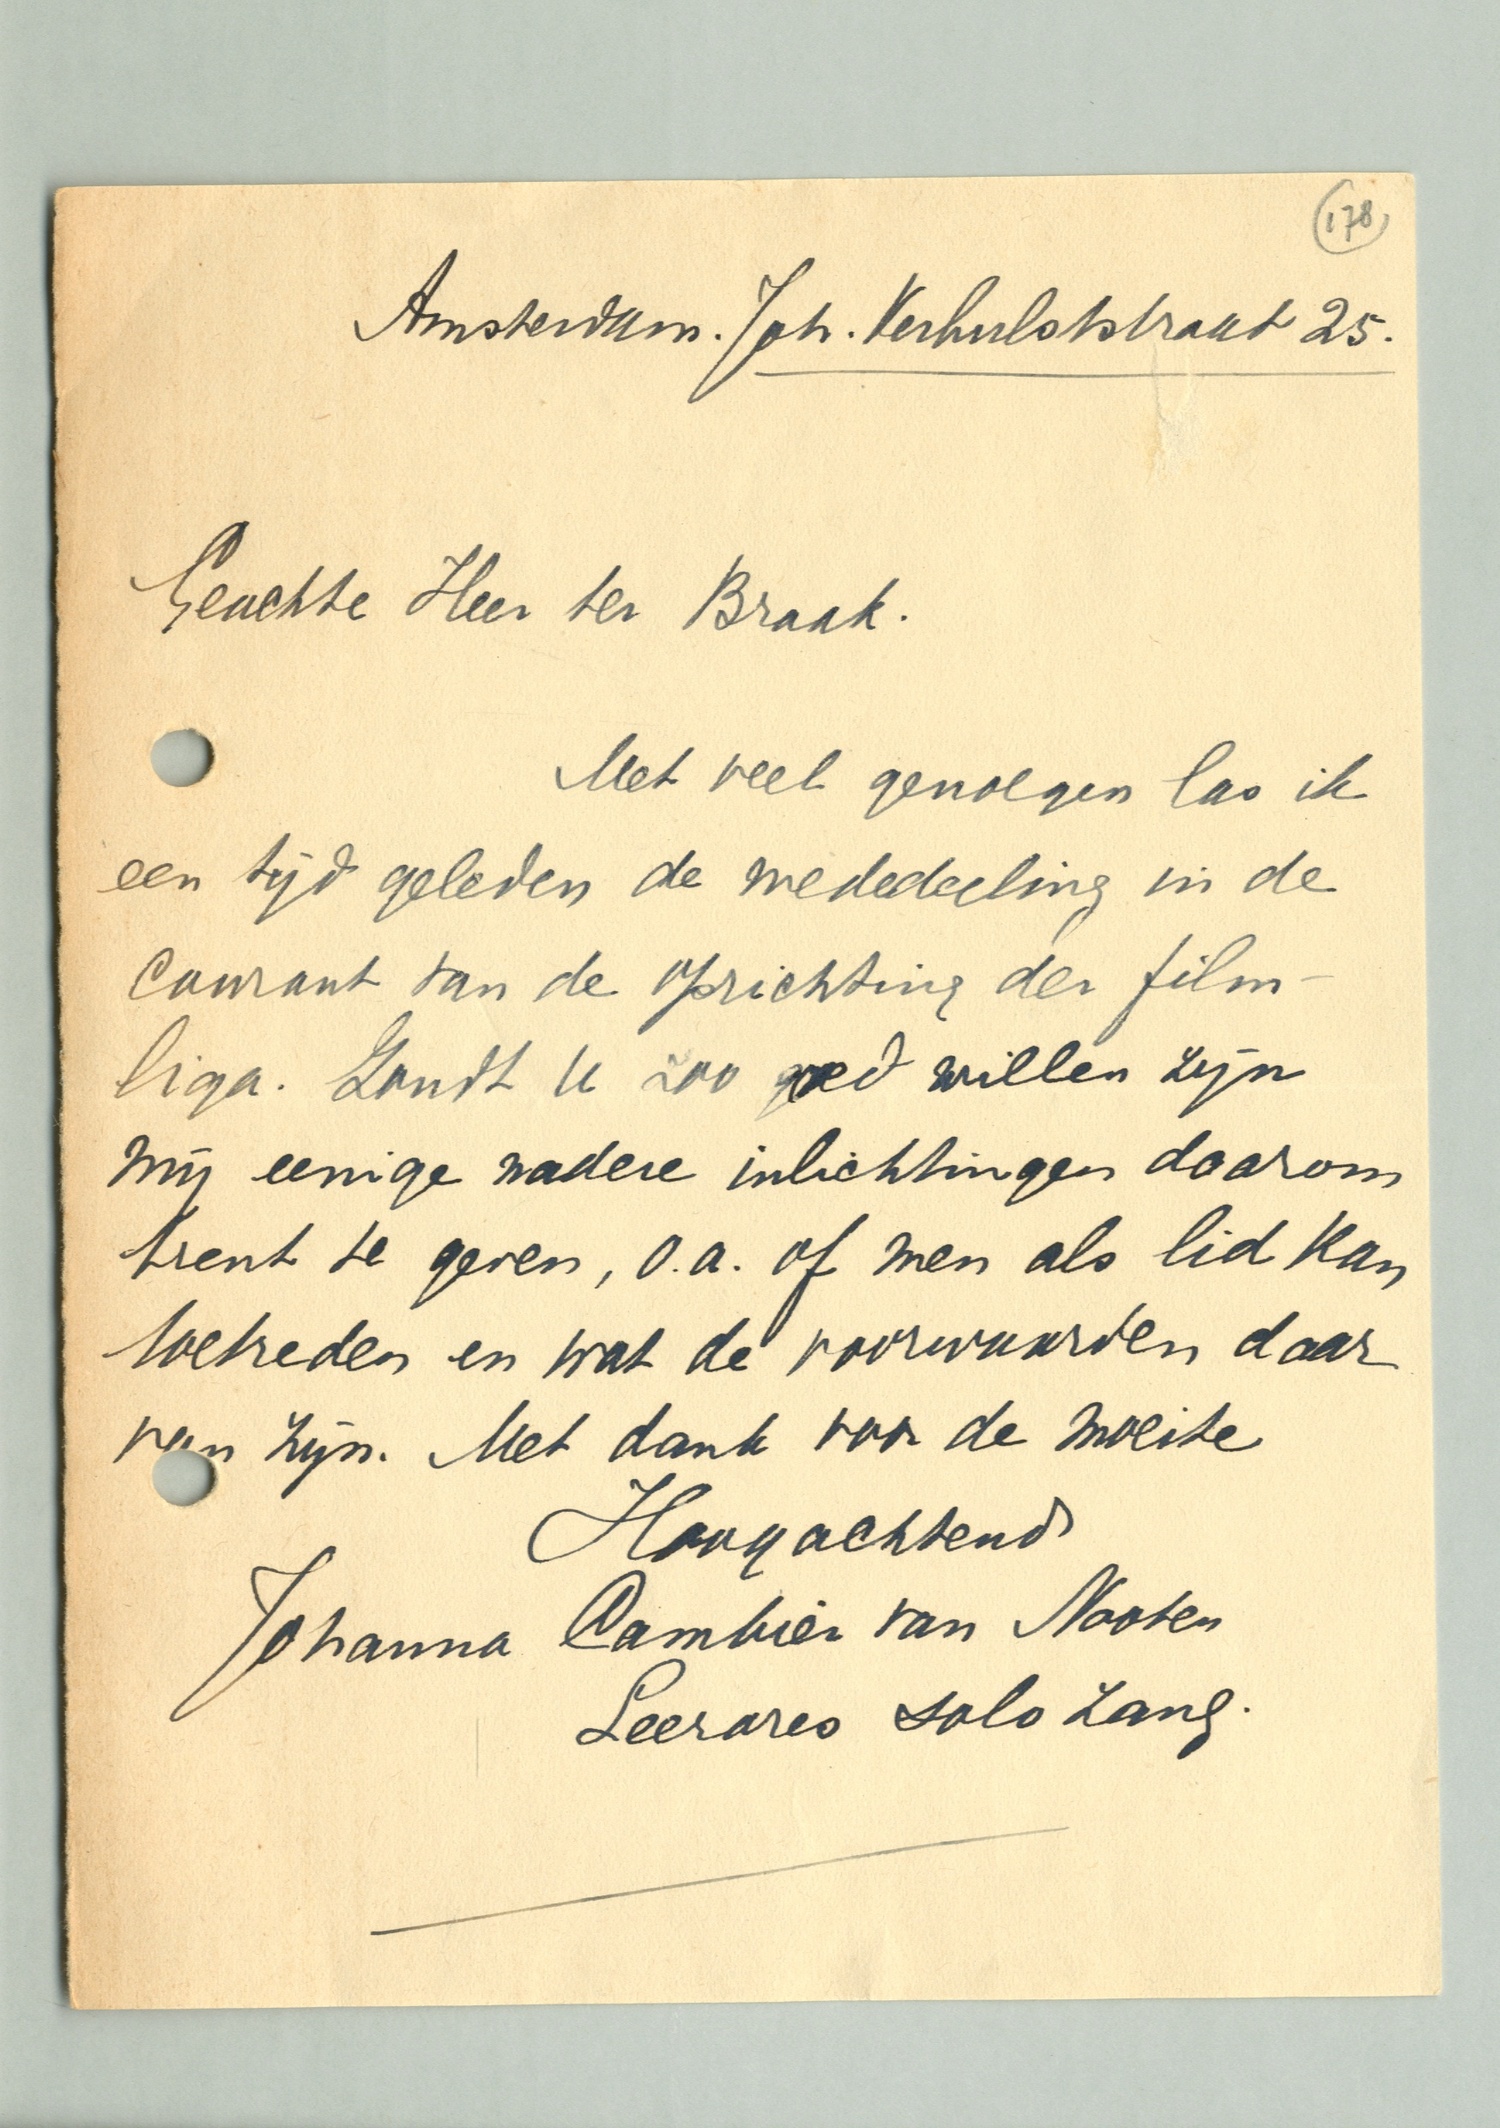 178
Amsterdam. Joh. Verhulststraat 25.
Geachte Heer ter Braak.
Met veel genoegen las ik
een tijd geleden de mededeeling in de
courant van de oprichting der film-
liga. Zoudt U zoo goed willen zijn
mij eenige nadere inlichtingen daarom
trent te geven, o.a. of men als lid kan
toetreden en wat de voorwaarden daar
van zijn. Met dank voor de moeite
Hoogachtend
Johanna Cambier van Nooten
Leerares solo zang.